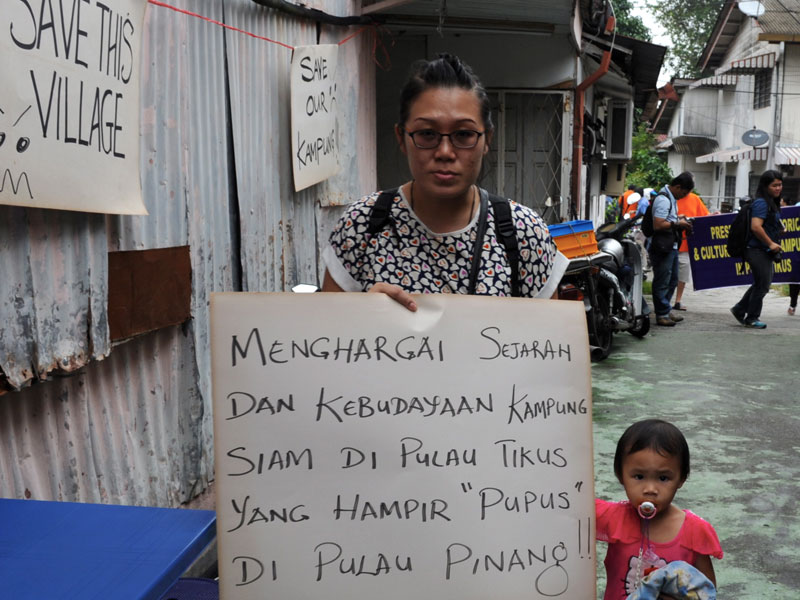 SAVE THIS
VILLAGE
SAVE
OUR
KAMPUNG!!
MENGHARGAI SEJARAH
DAN KEBUDAYAAN KAMPUNG
SIAM DI PULAU TIKUS
YANG HAMPIR "PUPUS"
DI PULAU PINANG!!
& CULTU
TIKUS